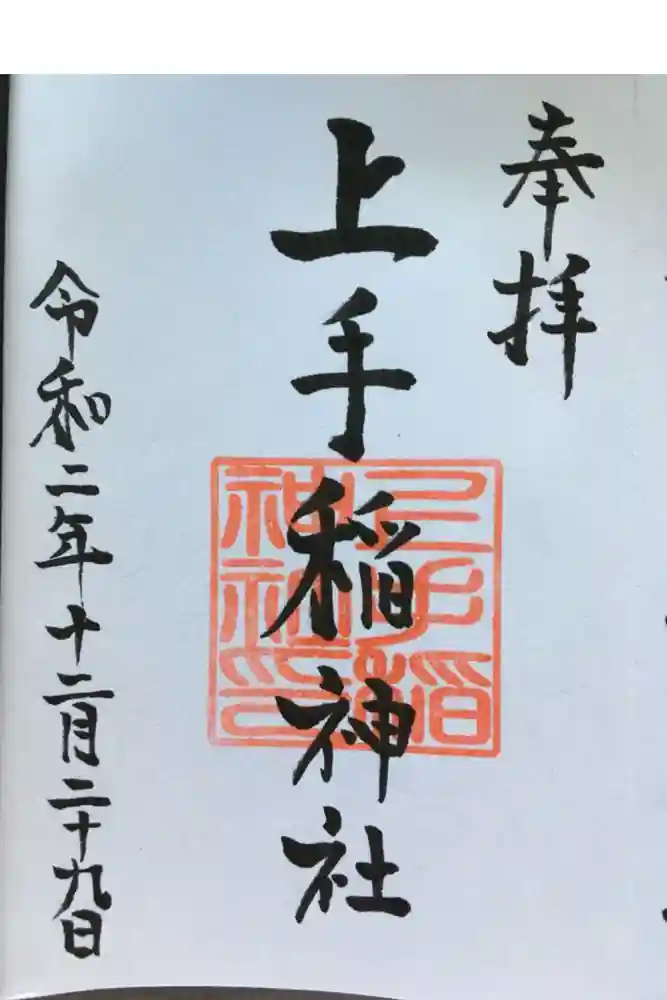 奉拝
上手稲神社
上手稲
神社印
令和二年十二月二十九日